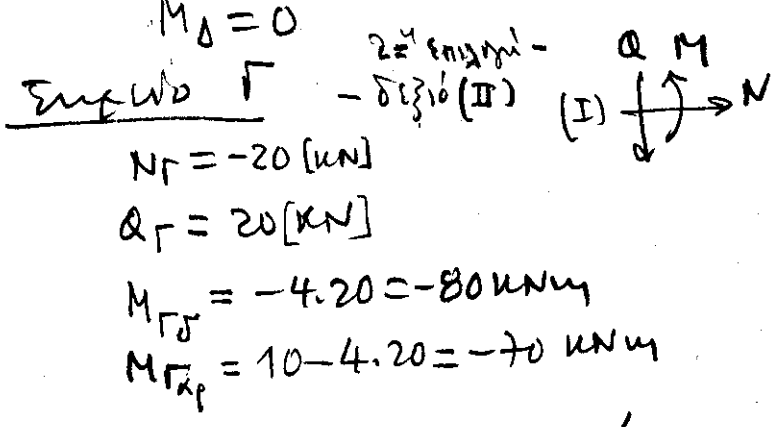 M_Δ = 0
Σημείο Γ
2η επιλογή -
- δεξιό (II)
Q M
(I) N
N_Γ = -20 [kN]
Q_Γ = 20 [kN]
M_Γδ = -4.20 = -80 kNm
M_Γαρ = 10-4.20 = -70 kNm